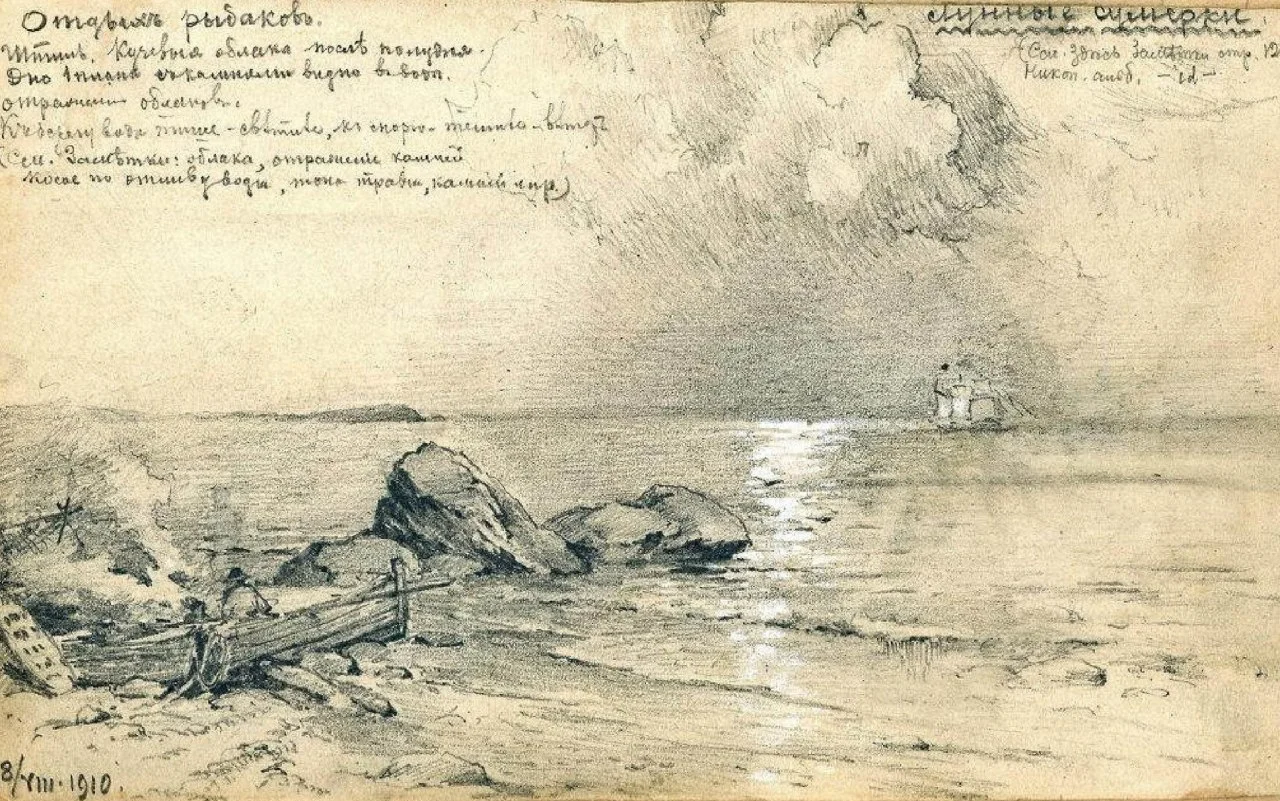 Отдыхъ рыбаковъ.
Штиль. Кучевыя облака послѣ полудня.
Дно 1 плана съ камнями видно въ водѣ.
отражения облаковъ.
вода тише - свѣтлѣе, къ - темнѣе -
(См. Замѣтки: облака, отражение камней
косое по отливу воды, тона травы, камней)
Лунные сумерки.
(См. здѣсь Замѣтки стр. 12
- id -
8/VIII. 1910.